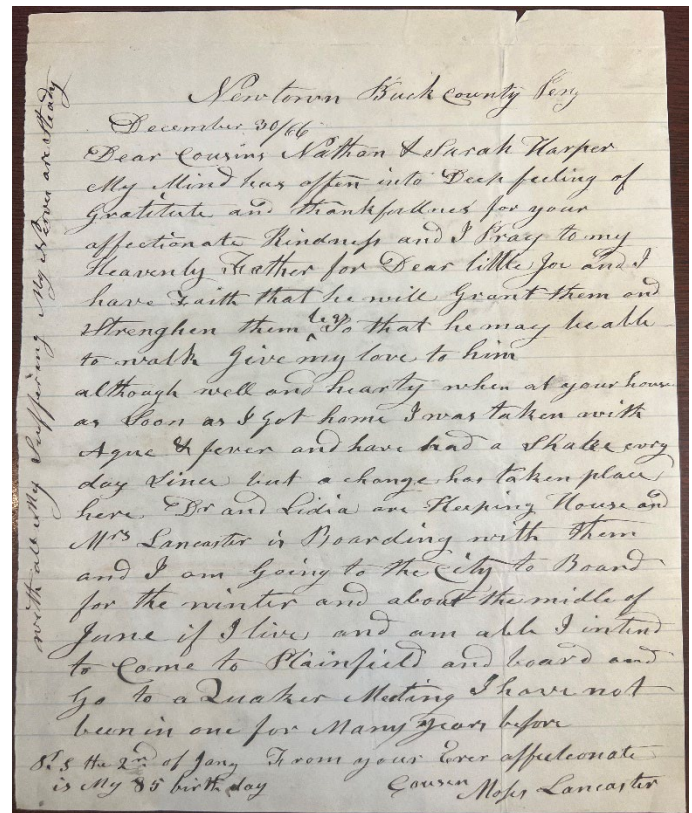 Newtown Buck County Peny
December 30/66
Dear Cousins Nathan & Sarah Harper
My Mind has offen into Deep feeling of
Gratitute and thankfullnes for your
affectionate Kindness and I Pray to my
Heavenly Father for Dear little Joe and I
have Faith that he will Grant them and
Strenghen them legs So that he may be able
to walk Give my love to him
although well and hearty when at your house
as Soon as I got home I was taken with
Ague & fever and have had a Shake evry
day Since but a change has taken place
here Dr and Lidia are Keeping House and
Mrs Lancaster is Boarding with them
and I am Going to the City to Board
for the winter and about the midle of
June if I live and am able I intend
to Come to Plainfield and board and
Go to a Quaker Meeting I have not
been in one for Many Years before
From your Ever affectonate
Cousen Moses Lancaster
P.S the 2nd of Jany
is My 85 birth day
with all My Suffering My Nerves are Steady